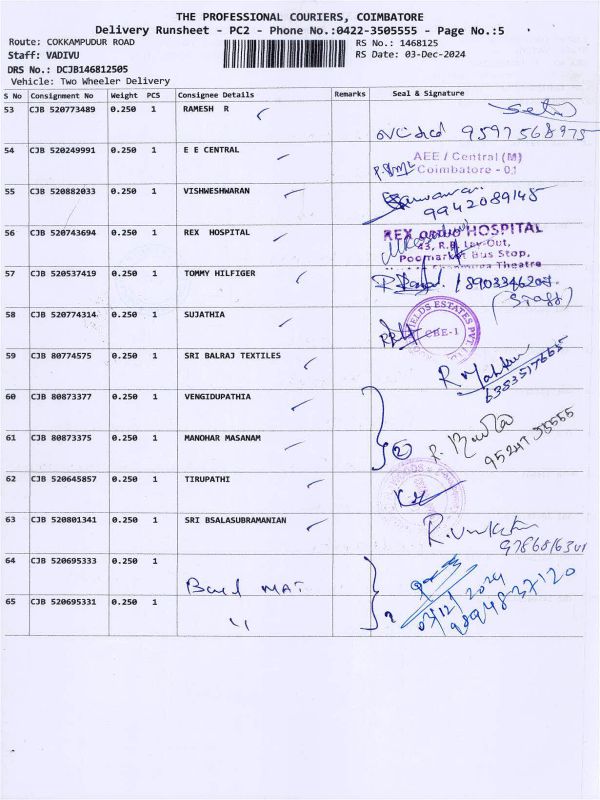 THE PROFESSIONAL COURIERS, COIMBATORE
Delivery Runsheet - PC2 - Phone No.:0422-3505555 - Page No.:5
Route: COKKAMPUDUR ROAD RS No.: 1468125
Staff: VADIVU RS Date: 03-Dec-2024
DRS No.: DCJB146812505
Vehicle: Two Wheeler Delivery
S No Consignment No Weight PCS Consignee Details Remarks Seal & Signature
53 CJB 520773489 0.250 1 RAMESH R
9597568975
54 CJB 520249991 0.250 1 E E CENTRAL AEE / Central (M)
Coimbatore - 01
55 CJB 520882033 0.250 1 VISHWESHWARAN
9942089145
56 CJB 520743694 0.250 1 REX HOSPITAL REX ORTHO HOSPITAL
43, R.R. Lay-Out,
Poomarket Bus Stop,
Theatre
57 CJB 520537419 0.250 1 TOMMY HILFIGER
(Staff)
58 CJB 520774314 0.250 1 SUJATHIA ESTATES PVT
CBE-1
59 CJB 80774575 0.250 1 SRI BALRAJ TEXTILES
60 CJB 80873377 0.250 1 VENGIDUPATHIA
61 CJB 80873375 0.250 1 MANOHAR MASANAM 2
62 CJB 520645857 0.250 1 TIRUPATHI
63 CJB 520801341 0.250 1 SRI BSALASUBRAMANIAN
64 CJB 520695333 0.250 1
MAT
03/12/2024
9894837120
65 CJB 520695331 0.250 1 " 2